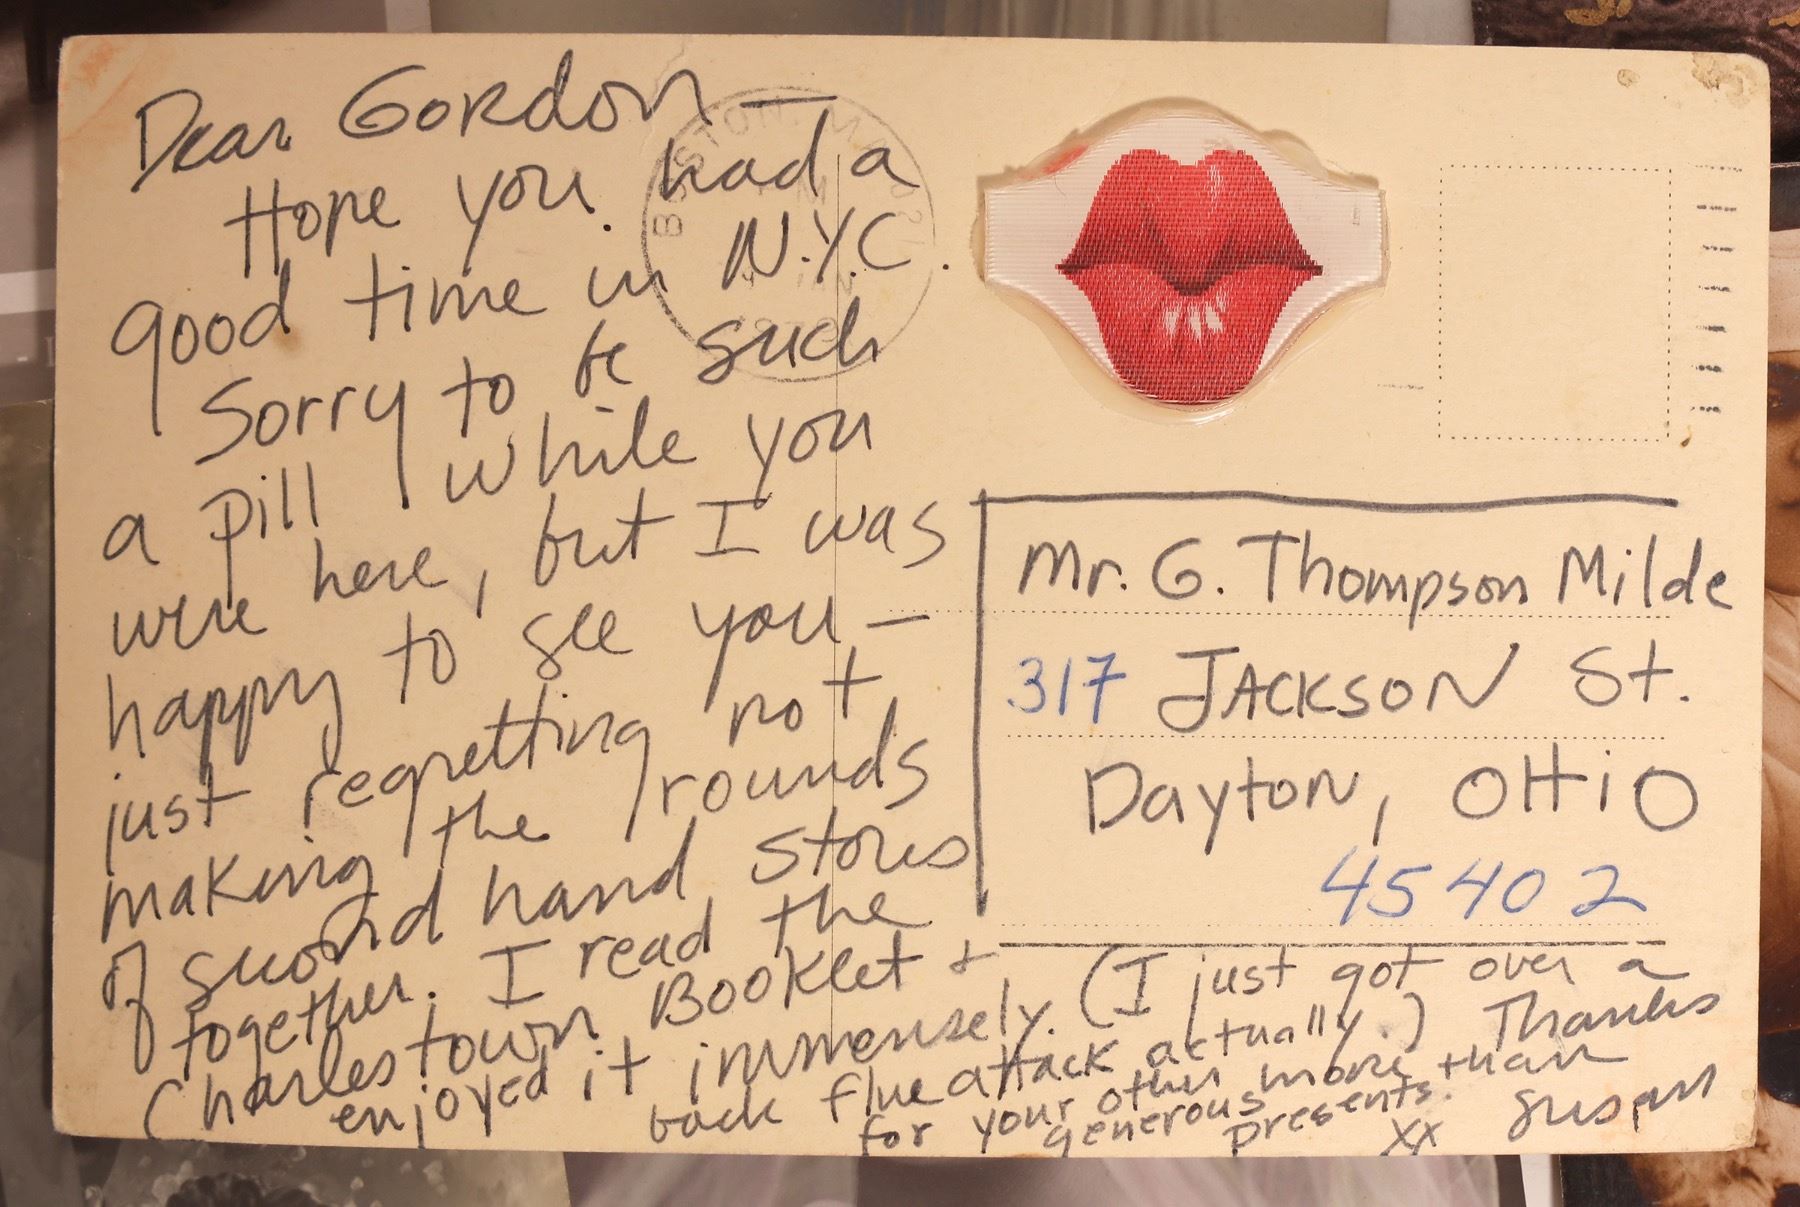 Dear Gordon —
Hope you had a
good time in N.Y.C.
Sorry to be such
a pill while you
were here, but I was
happy to see you —
just regretting not
making the rounds
of second hand stores
together. I read the
Charlestown Booklet +
enjoyed it immensely. (I just got over a
back flue attack actually.) Thanks
for your other more than
generous presents.
xx Susan
BOSTON, M
Mr. G. Thompson Milde
317 JACKSON St.
Dayton, OHiO
45402